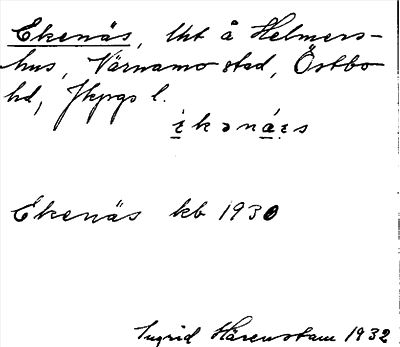 Ekenäs, lht å Helmers-
hus, Värnamo stad, Östbo
hd, Jkpgs l.
ekənä́s
Ekenäs kb 1930
Ingrid Härenstam 1932